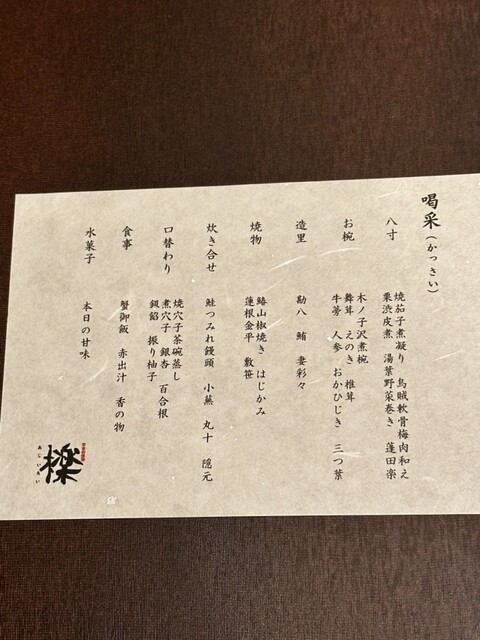 喝采(かっさい)
八寸
焼茄子煮凝り 烏賊軟骨梅肉和え
栗渋皮煮 湯葉野菜巻き 蓬田楽
お椀
木ノ子沢煮椀
舞茸 えのき 椎茸
牛蒡 人参 おかひじき 三つ葉
造里
勘八 鮪 妻彩々
焼物
鰆山椒焼き はじかみ
蓮根金平 敷笹
炊き合せ
鮭つみれ饅頭 小蕪 丸十 隠元
口替わり
焼穴子茶碗蒸し
煮穴子 銀杏 百合根
銀餡 振り柚子
食事
蟹御飯 赤出汁 香の物
水菓子
本日の甘味
櫟